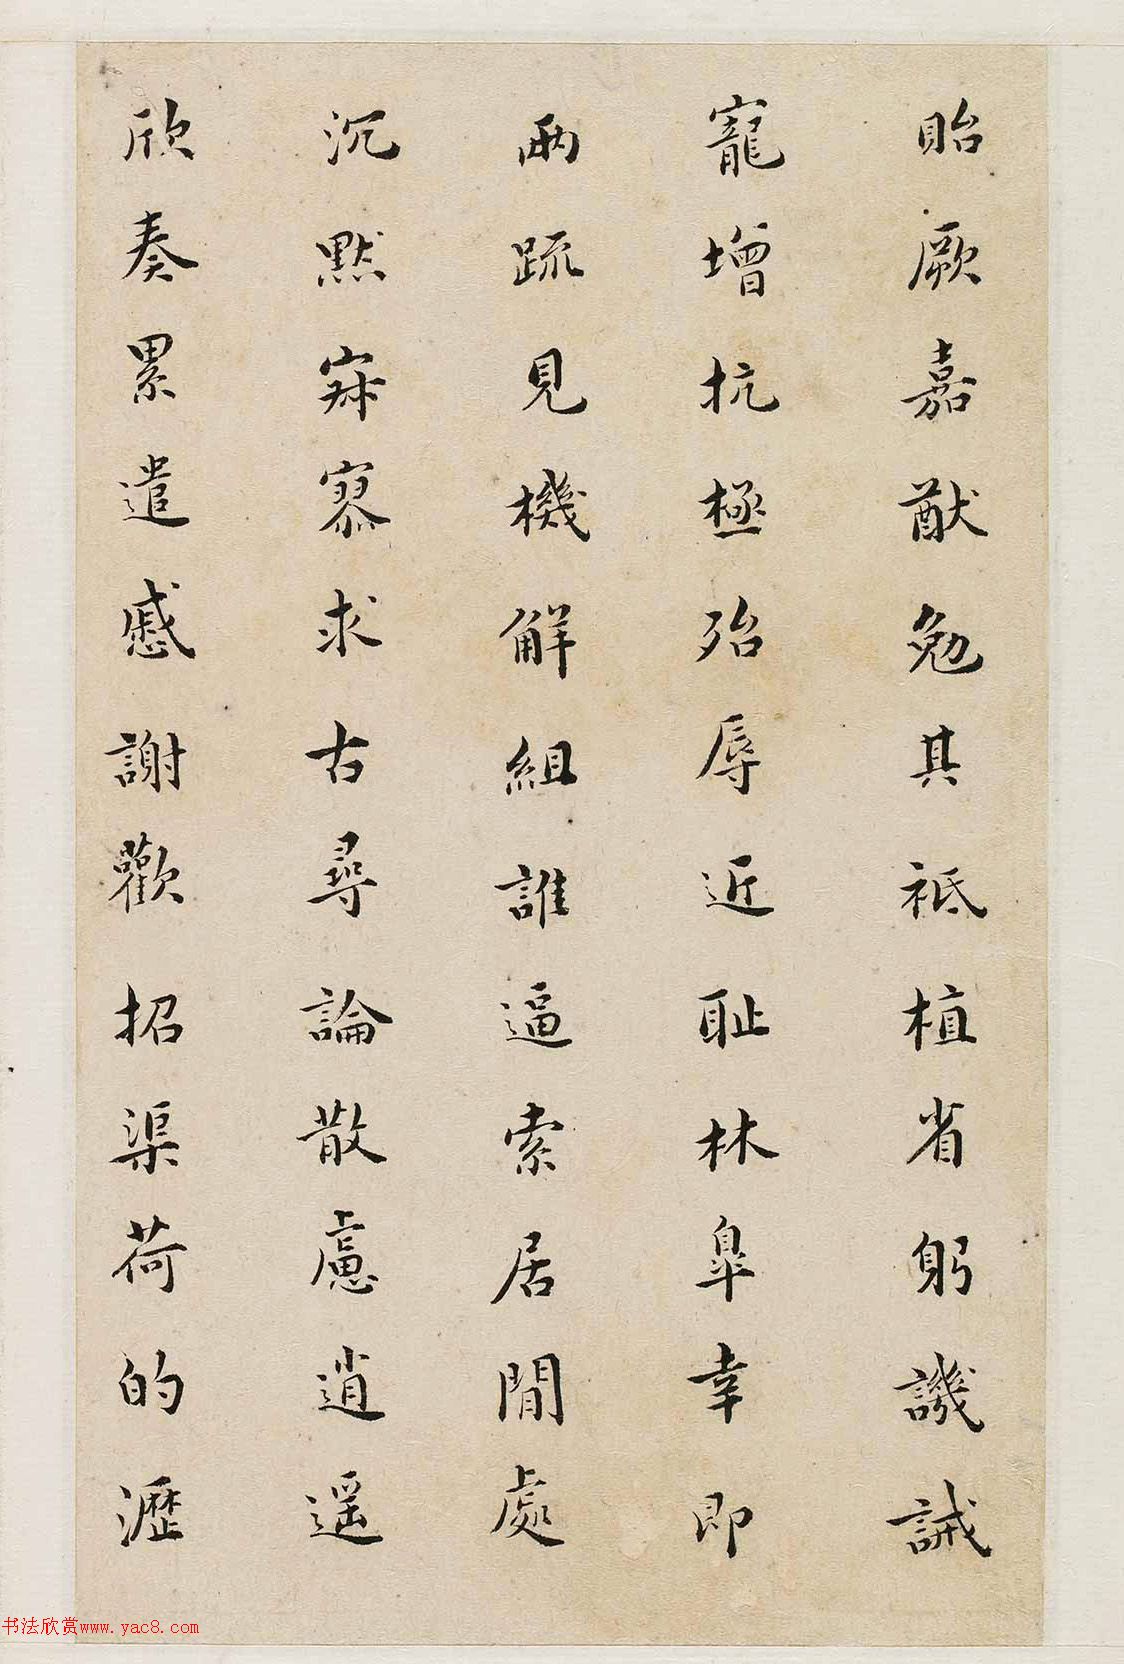 貽厥嘉猷勉其祗植省躬譏誡
寵增抗極殆辱近恥林皐幸即
兩疏見機解組誰逼索居閒處
沉默寂寥求古尋論散慮逍遥
欣奏累遣慼謝歡招渠荷的瀝
书法欣赏www.yac8.com